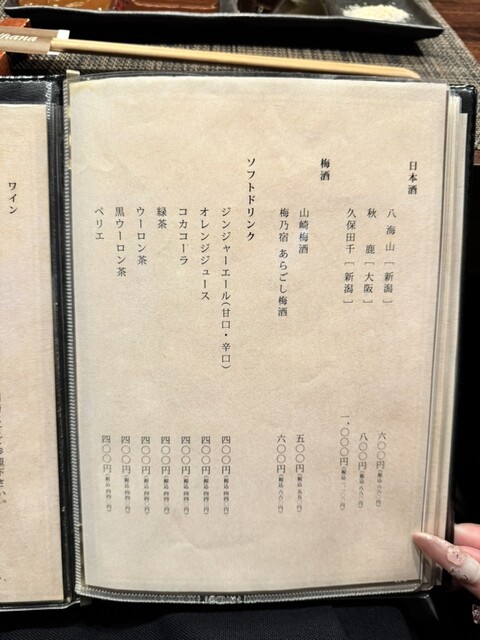 日本酒
八海山［新潟］ 六〇〇円（税込 六六〇円）
秋鹿［大阪］ 八〇〇円（税込 八八〇円）
久保田千［新潟］ 一、〇〇〇円（税込 一一〇〇円）
梅酒
山崎梅酒 五〇〇円（税込 五五〇円）
梅乃宿 あらごし梅酒 六〇〇円（税込 六六〇円）
ソフトドリンク
ジンジャーエール（甘口・辛口） 四〇〇円（税込 四四〇円）
オレンジジュース 四〇〇円（税込 四四〇円）
コカコーラ 四〇〇円（税込 四四〇円）
緑茶 四〇〇円（税込 四四〇円）
ウーロン茶 四〇〇円（税込 四四〇円）
黒ウーロン茶 四〇〇円（税込 四四〇円）
ペリエ 四〇〇円（税込 四四〇円）
ワイン